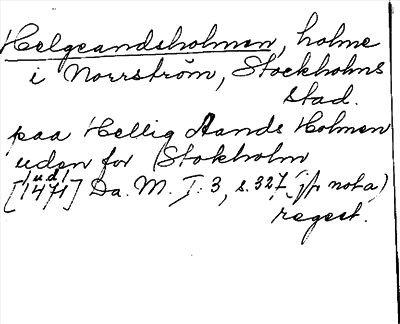 Helgeandsholmen, holme
i Norrström, Stockholms
stad.
paa Hellig Aands Holmen
uden for Stokholm
[u.d. 1471] Da. M. I: 3, s. 327 (jfr not a)
regest.